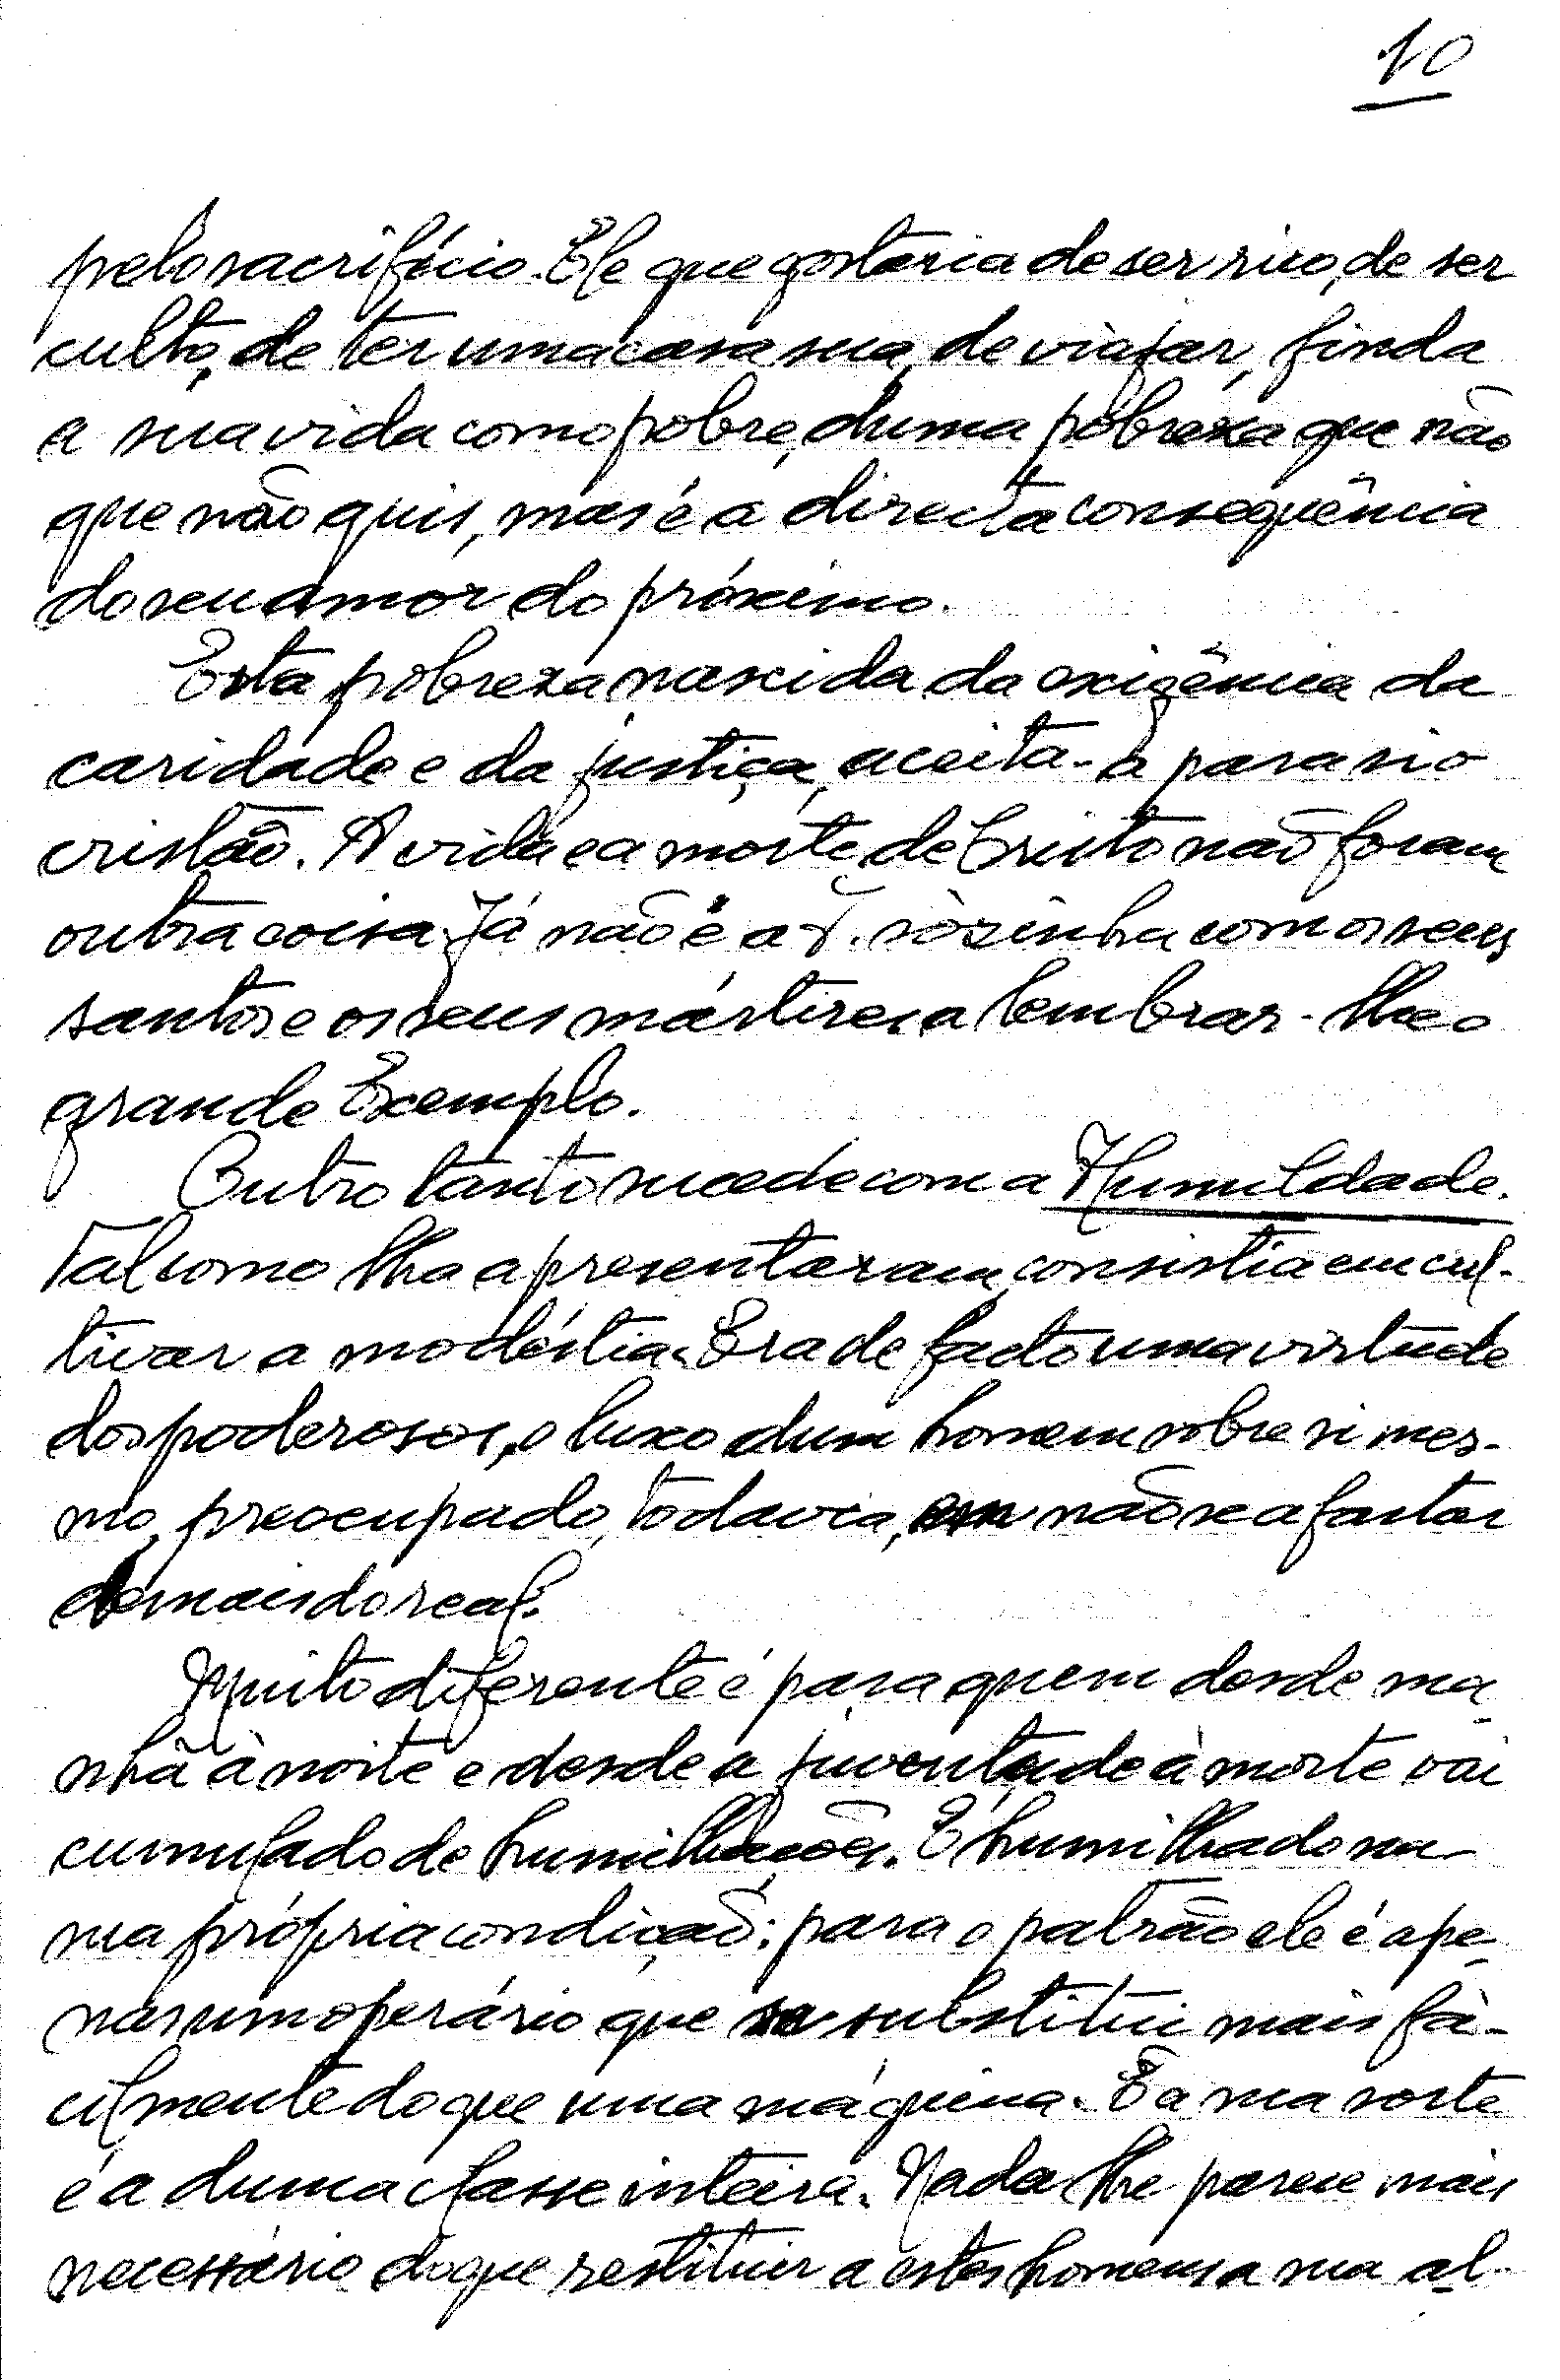 10
pelo sacrifício. Ele que gostaria de ser rico, de ser
culto, de ter uma casa sua, de viajar, finda
a sua vida como pobre, duma pobreza que não
que não quis, mas é a directa consequência
do seu amor do próximo.
Esta pobreza nascida da exigência da
caridade e da justiça, aceita-a para si o
cristão. A vida e a morte de Cristo não foram
outra coisa. Já não é a I. sòzinha com os seus
santos e os seus mártires a lembrar-lhe o
grande Exemplo.
Outro tanto sucede com a Humildade.
Tal como lha apresentaram, consistia em cul-
tivar a modéstia. Era de facto uma virtude
dos poderosos, o luxo dum homem sobre si mes-
mo, preocupado, todavia, em não se afastar
demais do real.
Muito diferente é para quem desde ma-
nhã à noite e desde a juventude à morte vai
cumulado de humilhações. É humilhado na
sua própria condição: para o patrão ele é ape-
nas um operário que se substitui mais fà-
cilmente do que uma máquina. E a sua sorte
é a duma classe inteira. Nada lhe parece mais
necessário do que restituir a estes homens a sua al-